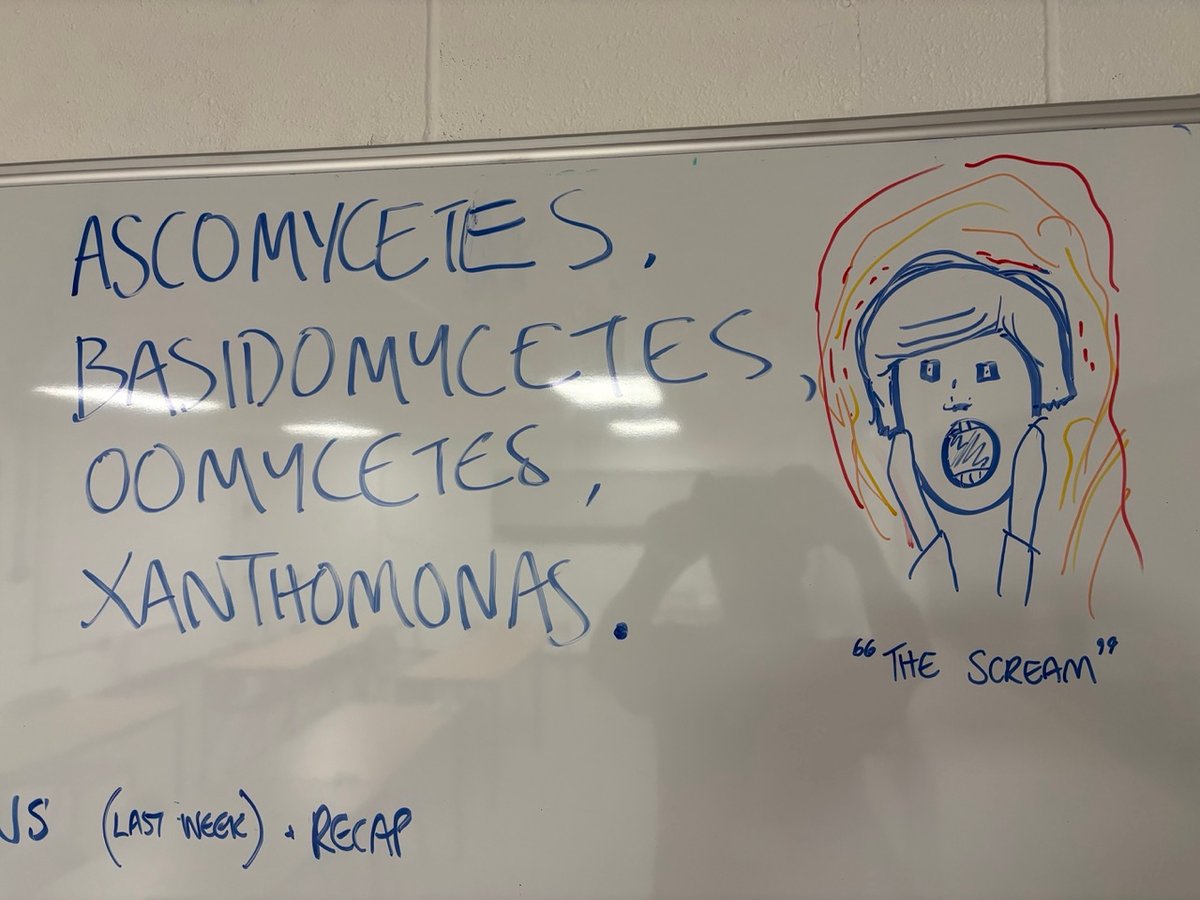 ASCOMYCETES,
BASIDOMYCETES,
OOMYCETES,
XANTHOMONAS.
"THE SCREAM"
(LAST WEEK) . RECAP